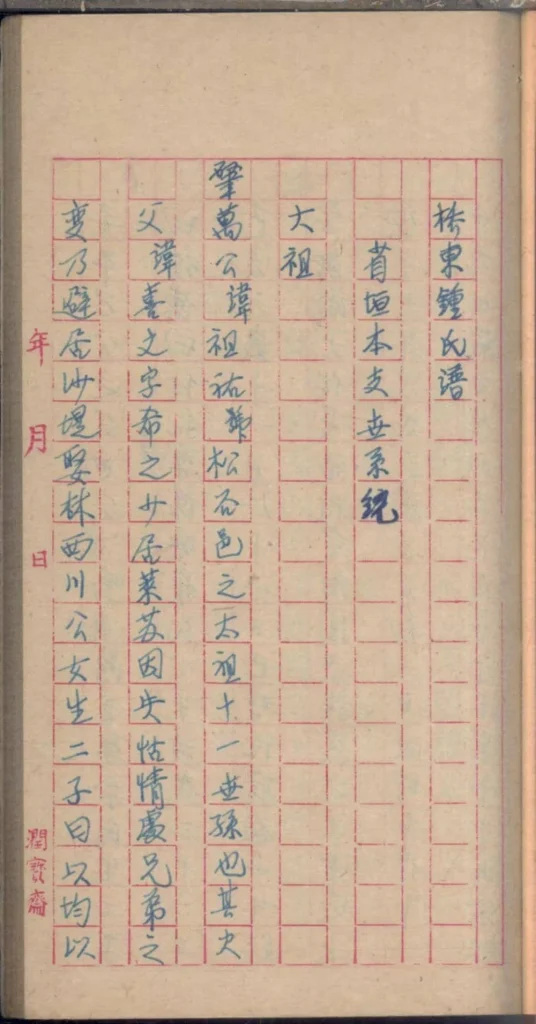 桥東鍾氏谱
省垣本支世系统
大祖
肇萬公諱祖祐號松石邑之太祖十一世孫也其大
父諱喜文字希之少居萊苏因失怙情處兄弟之
变乃避居沙堤娶林西川公女生二子曰以均以
年 月 日
潤寶齋